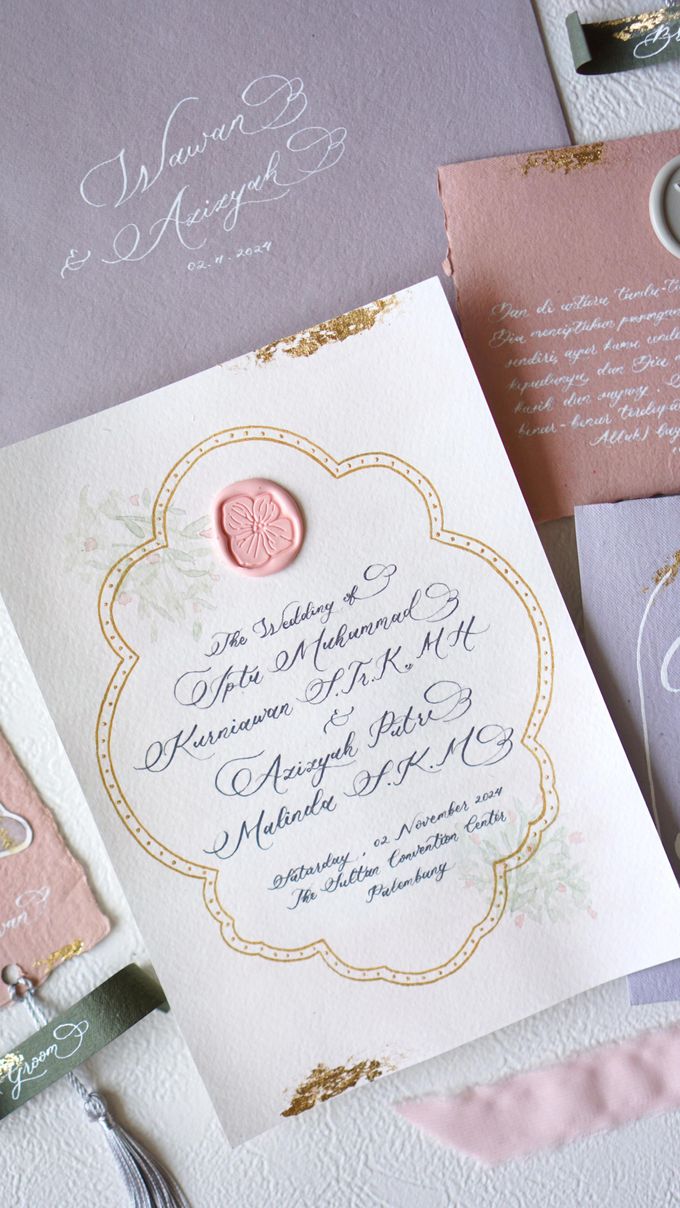 Wawan
& Azizyah
02.11.2024
Br
Dan di antara tanda-t
Dia menciptakan pasangan
sendiri, agar kamu
kepadanya, dan Dia
kasih dan sayang.
benar-benar terdapat
Allah) bag
The Wedding of
Iptu Muhammad
Kurniawan S.Tr.K., MH
&
Azizyah Putri
Malinda S.K.M
Saturday, 02 November 2024
The Sultan Convention Center
Palembang
Groom